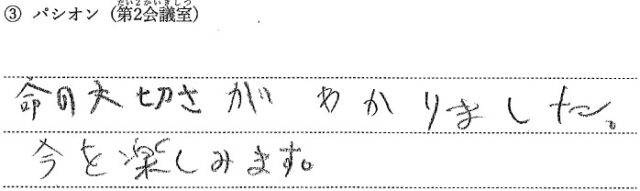 ③ パシオン（第2会議室）
命の大切さがわかりました。
今を楽しみます。